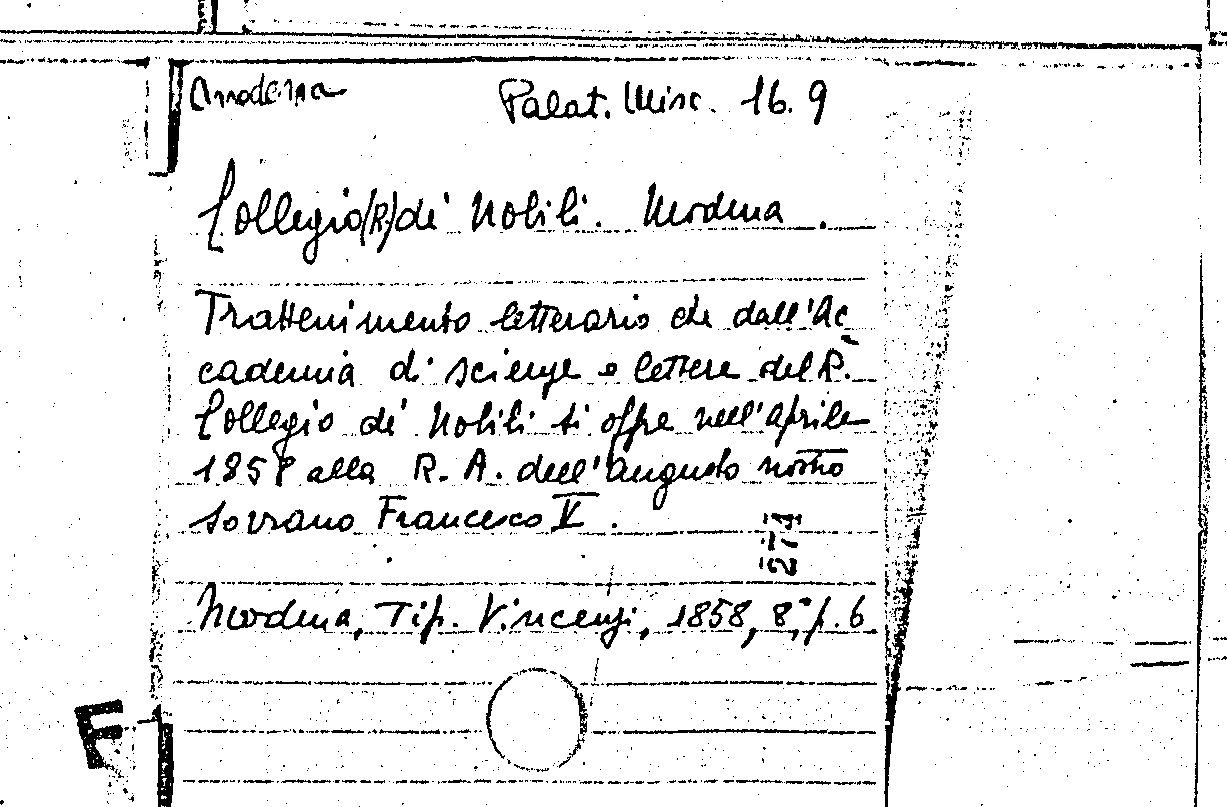 Modena Palat. Misc. 16.9
Collegio (R) de' Nobili. Modena.
Trattenimento letterario che dall'Ac
cademia di scienze e lettere del R.
Collegio de' Nobili si offre nell'aprile
1858 alla R. A. dell'augusto nostro
sovrano Francesco V.
271
Modena, Tip. Vincenzi, 1858, 8°, p. 6
F